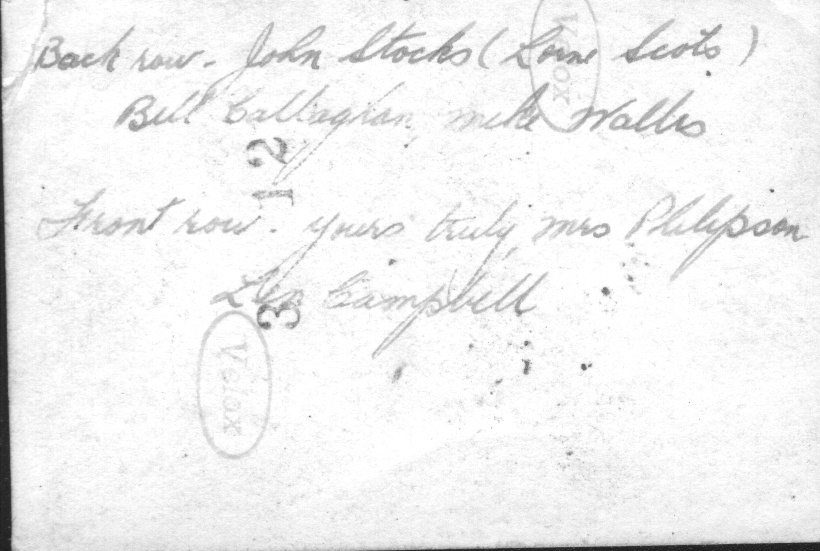 Back row - John Stocks (Lorne Scots)
Bill Callaghan, mike Wallis
Front row - yours truly, mrs Philipson
Len Campbell
Velox
12
3
Velox